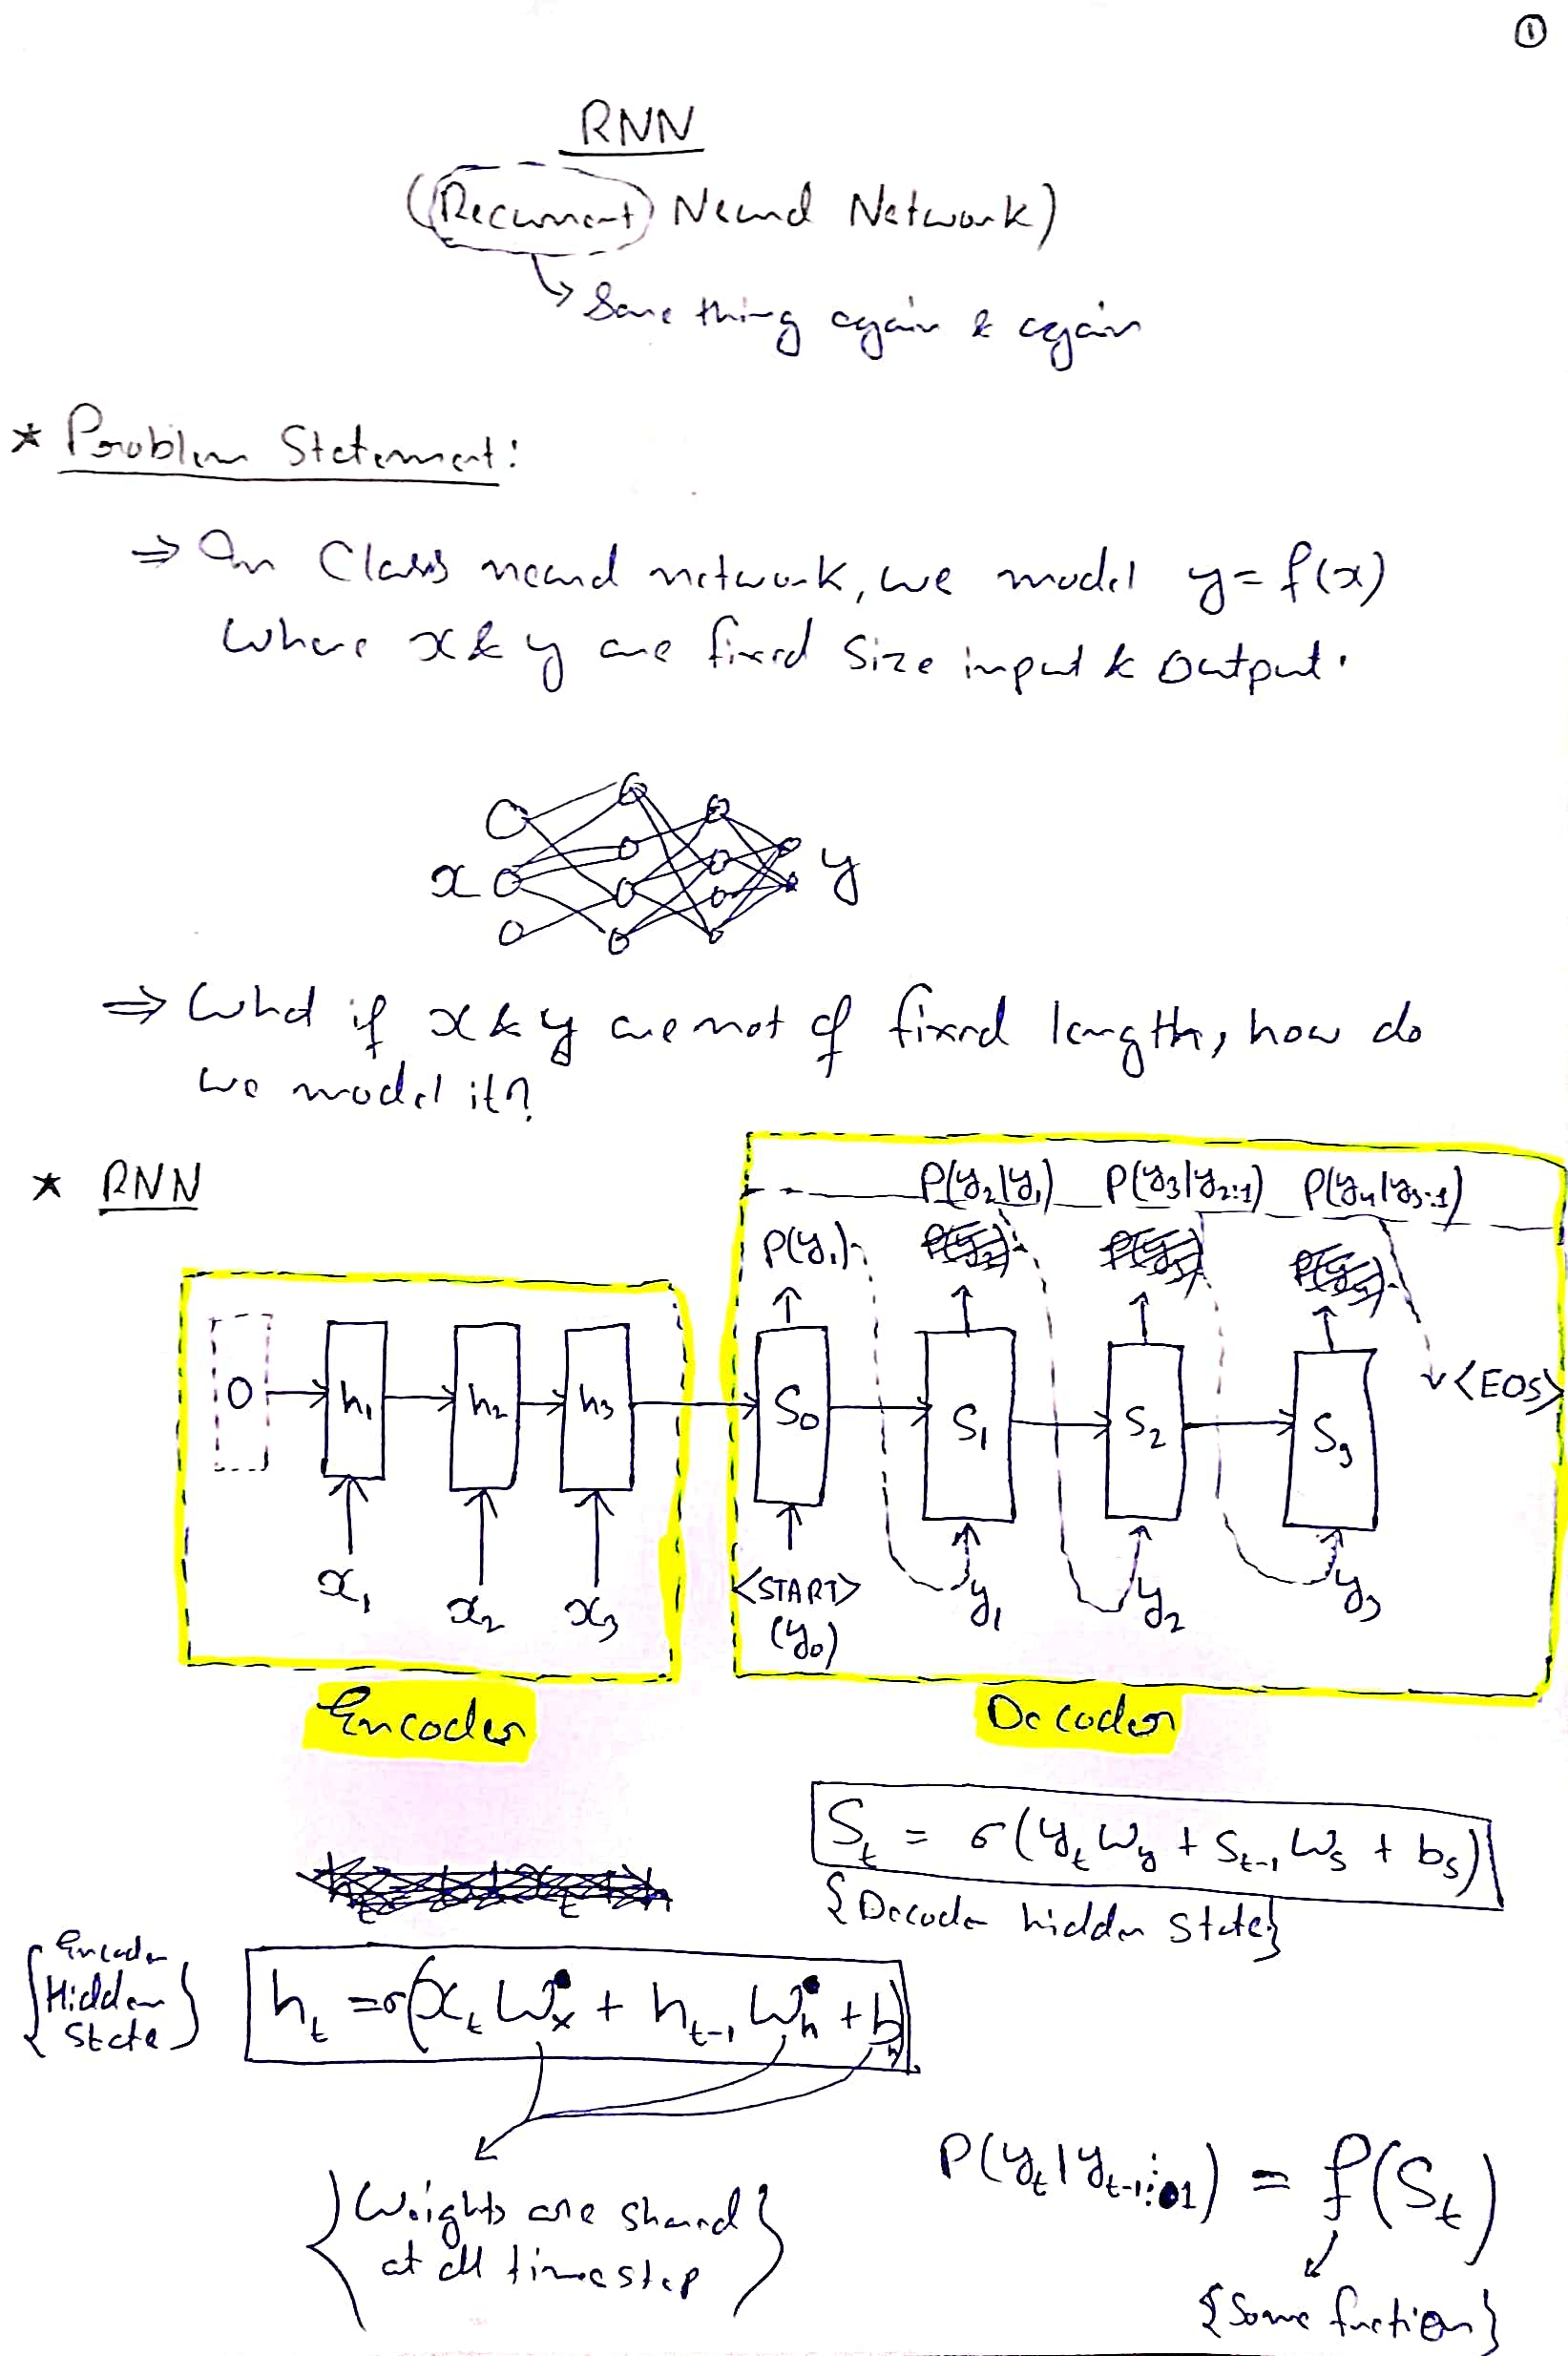 ①
RNN
(Recurrent Neural Network)
↳ Same thing again & again
* Problem Statement:
⇒ In Class neural network, we model y = f(x)
where x & y are fixed size input & output.
x y
⇒ What if x & y are not of fixed length, how do
we model it?
* RNN
P(y₂|y₁) P(y₃|y₂:₁) P(y₄|y₃:₁)
P(y₁)
0 → h₁ → h₂ → h₃ → S₀ → S₁ → S₂ → S₃
<EOS>
x₁ x₂ x₃ <START> y₁ y₂ y₃
(y₀)
Encoder Decoder
S_t = σ(y_t W_y + S_{t-1} W_s + b_s)
{Decoder hidden state}
{Encoder
Hidden
State}
h_t = σ(x_t W_x + h_{t-1} W_h + b_h)
{Weights are shared
at all timestep}
P(y_t|y_{t-1:1}) = f(S_t)
{Some fuction}